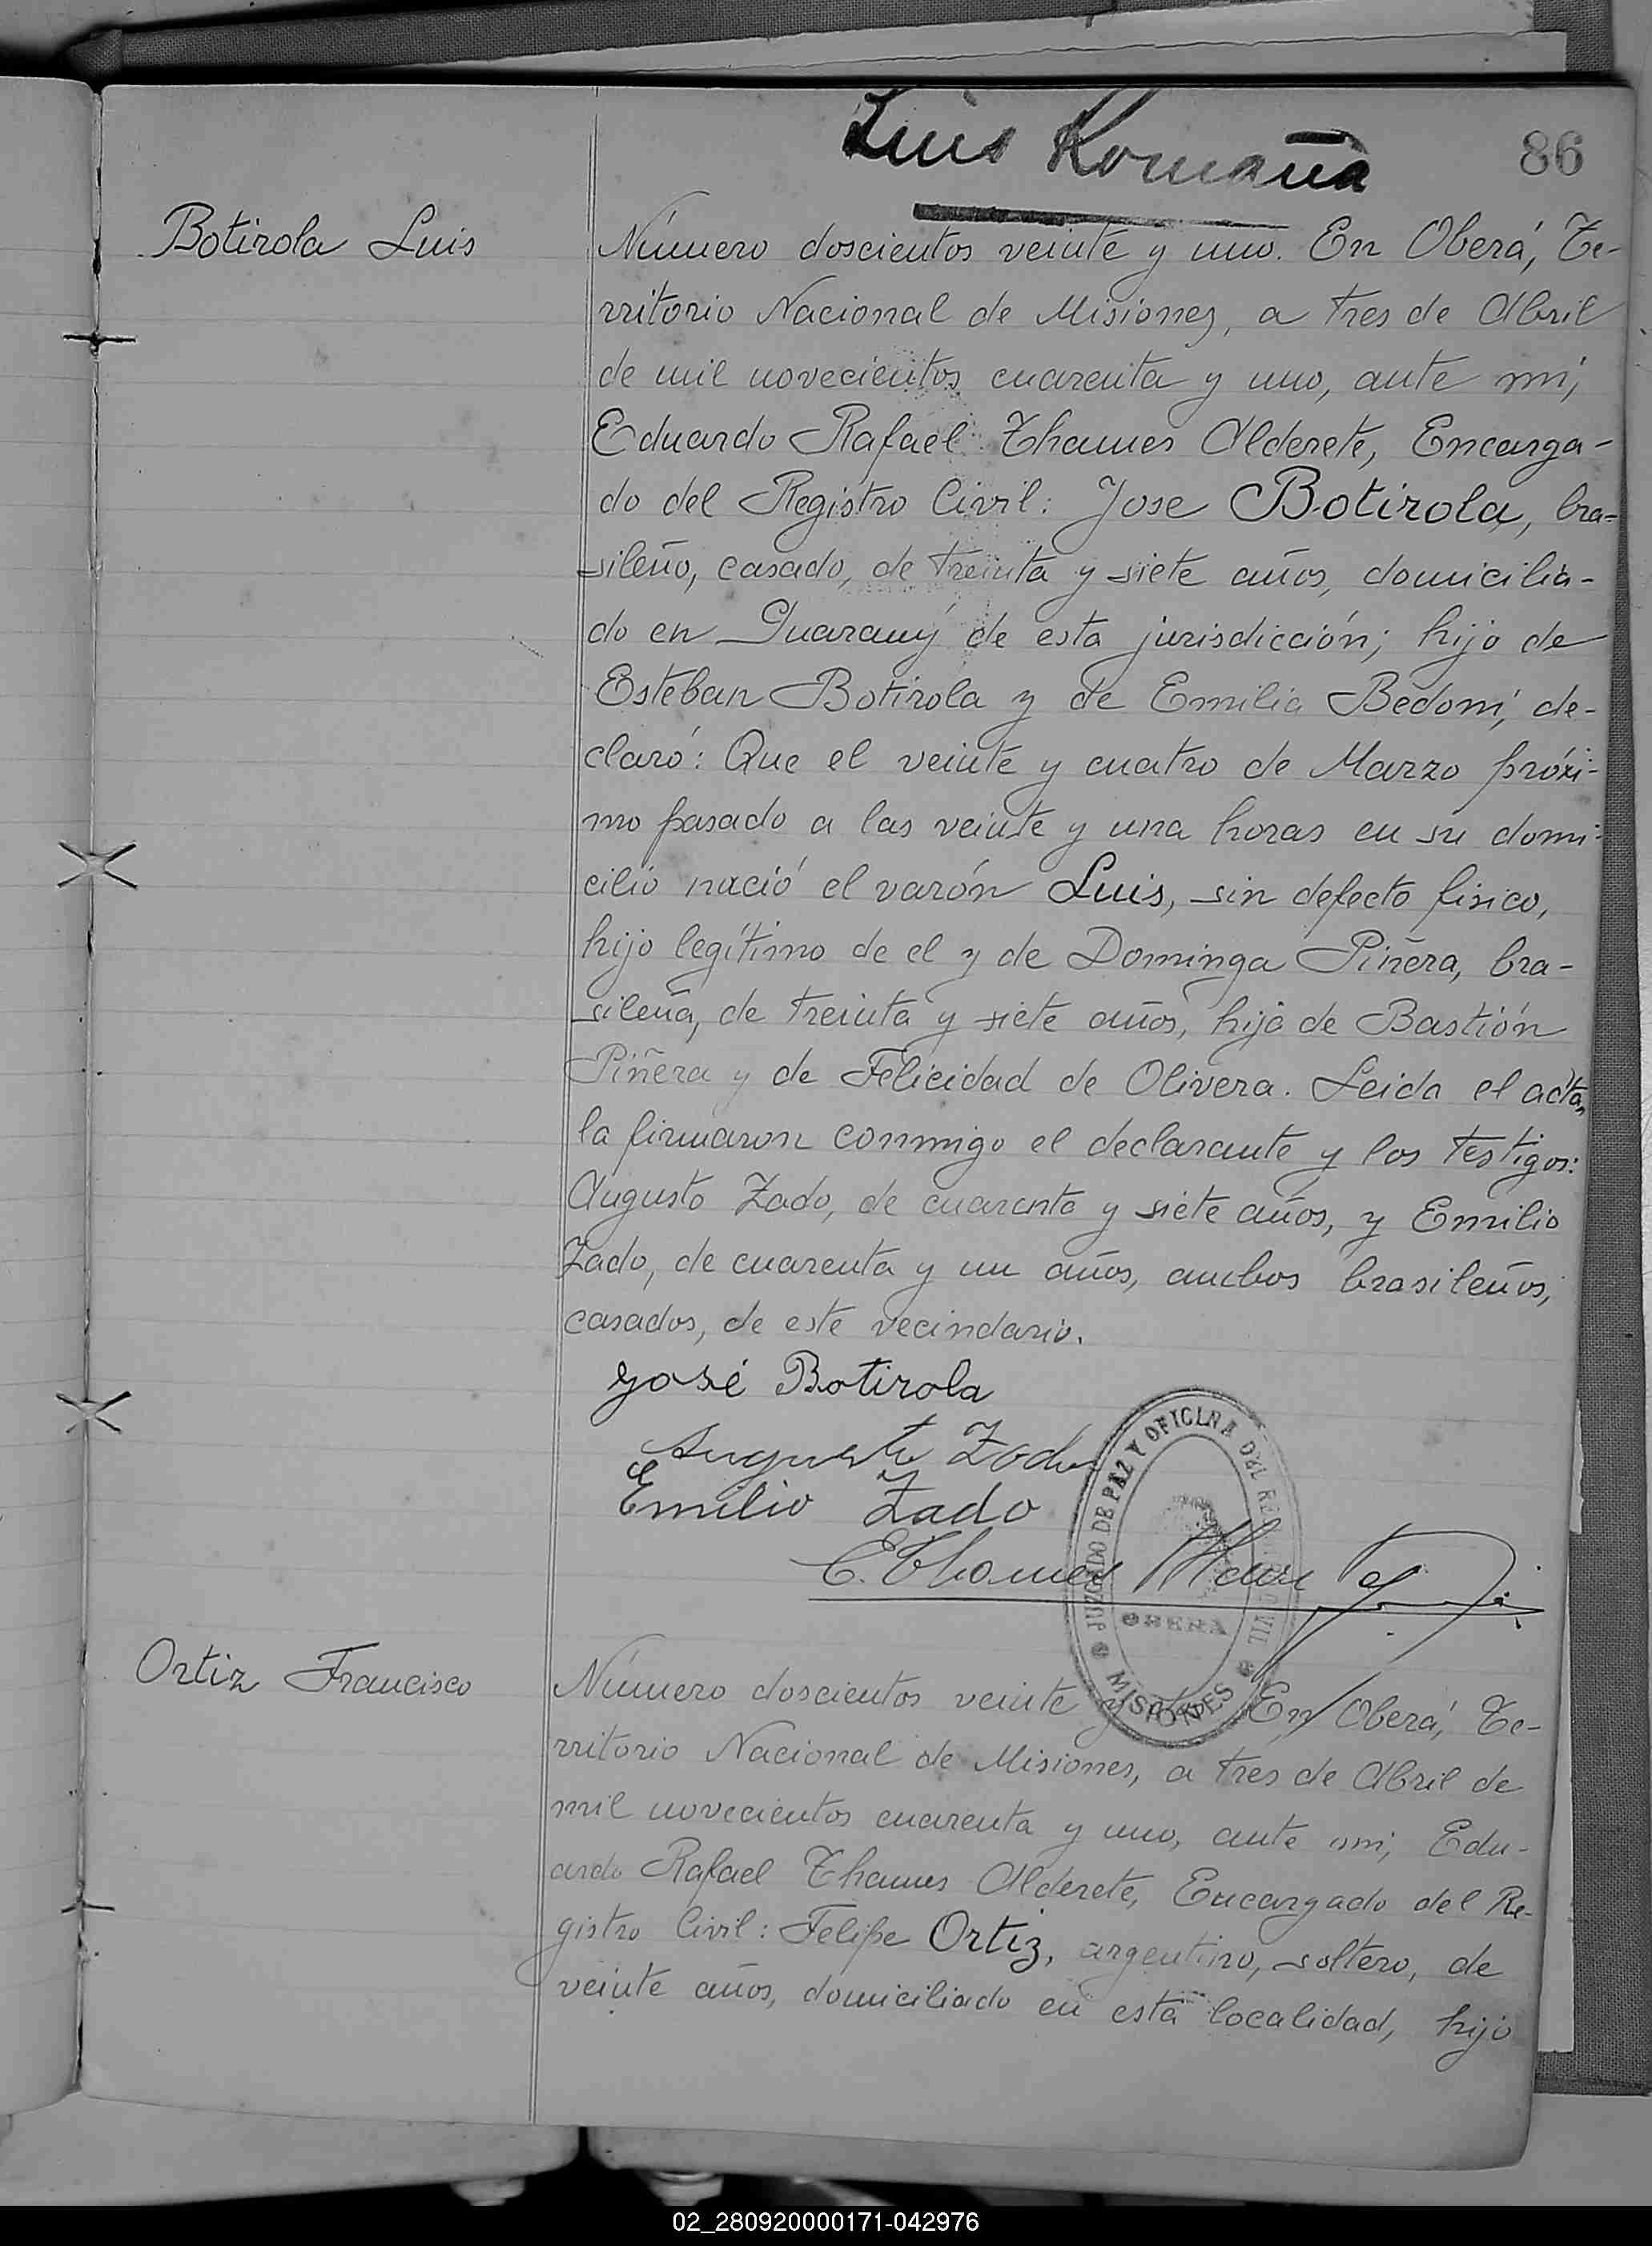 Luis Romaña
86
Botirola Luis
Número doscientos veinte y uno. En Oberá, Te-
rritorio Nacional de Misiones, a tres de Abril
de mil novecientos cuarenta y uno, ante mí,
Eduardo Rafael Thames Alderete, Encarga-
do del Registro Civil: Jose Botirola, bra-
sileño, casado, de treinta y siete años, domicilia-
do en Guarany de esta jurisdicción; hijo de
Esteban Botirola y de Emilia Bedoni, de-
claró: Que el veinte y cuatro de Marzo próxi-
mo pasado a las veinte y una horas en su domi-
cilio nació el varón Luis, sin defecto fisico,
hijo legítimo de el y de Dominga Piñera, bra-
sileña, de treinta y siete años, hija de Bastión
Piñera y de Felicidad de Olivera. Leida el acta,
la firmaron conmigo el declarante y los testigos:
Augusto Zado, de cuarenta y siete años, y Emilio
Zado, de cuarenta y un años, ambos brasileños,
casados, de este vecindario.
José Botirola
Augusto Zado
Emilio Zado
E. Thames
JUZGADO DE PAZ Y OFICINA DEL REGISTRO CIVIL
OBERA
MISIONES
Ortiz Francisco
Número doscientos veinte y En Oberá, Te-
rritorio Nacional de Misiones, a tres de Abril de
mil novecientos cuarenta y uno, ante mi, Edu-
ardo Rafael Thames Alderete, Encargado del Re-
gistro Civil: Felipe Ortiz, argentino, soltero, de
veinte años, domiciliado en esta localidad, hijo
02_280920000171-042976